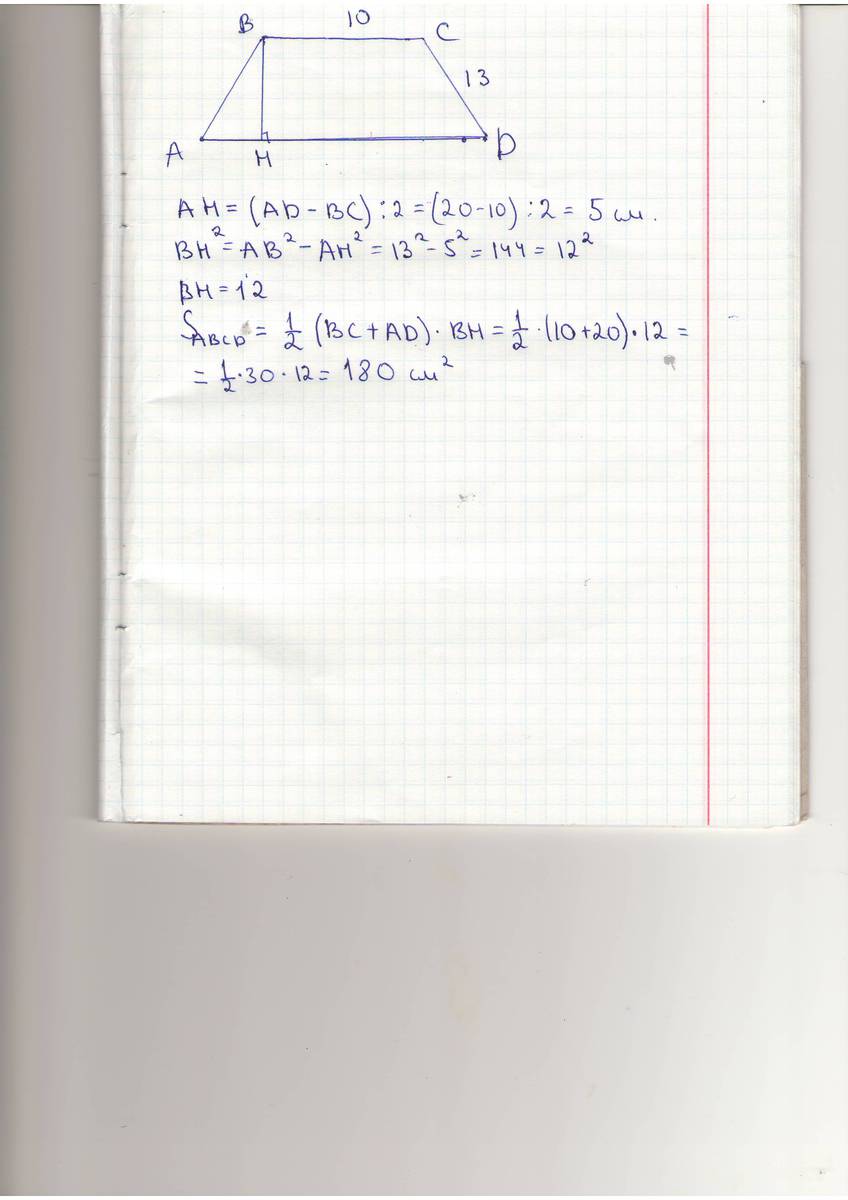 10
B
C
13
A
H
D
AH = (AD - BC) : 2 = (20-10) : 2 = 5 см.
BH² = AB² - AH² = 13² - 5² = 144 = 12²
BH = 12
S_ABCD = 1/2 (BC + AD) · BH = 1/2 · (10+20) · 12 =
= 1/2 · 30 · 12 = 180 см²